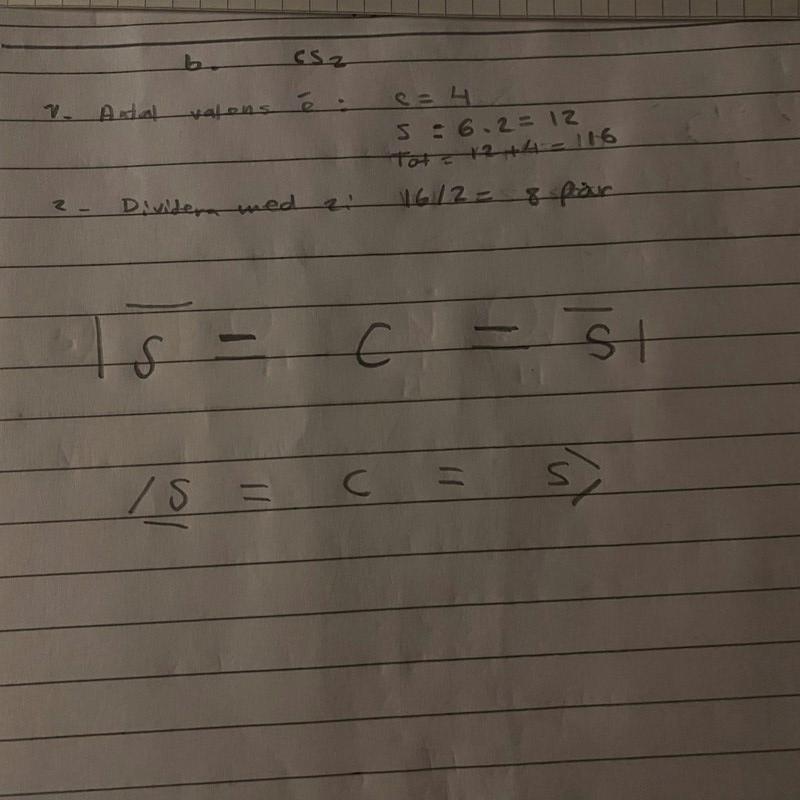 b. CS₂
1. Antal valens ē : C = 4
S = 6 · 2 = 12
Tot = 12 + 4 = 116
2 - Dividera med 2: 16/2 = 8 par
|S̅ = C = S̅|
/S̲ = C = S⟩